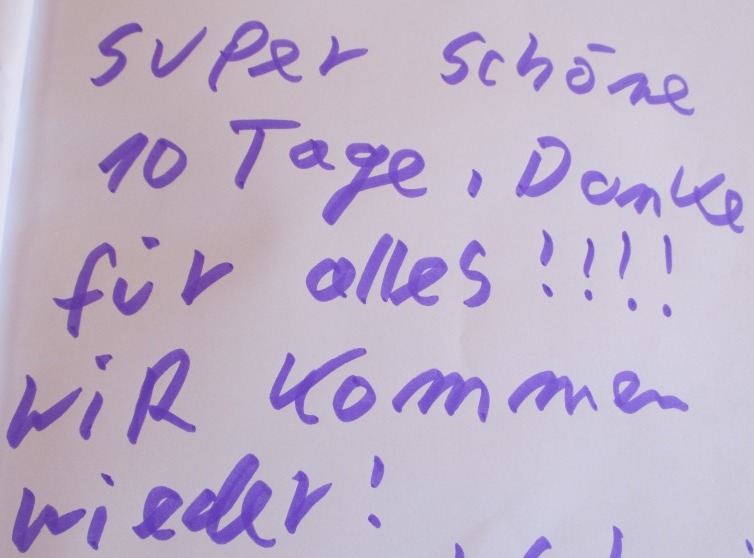 super schöne
10 Tage, Danke
für alles !!!!
wiR kommen
wieder!